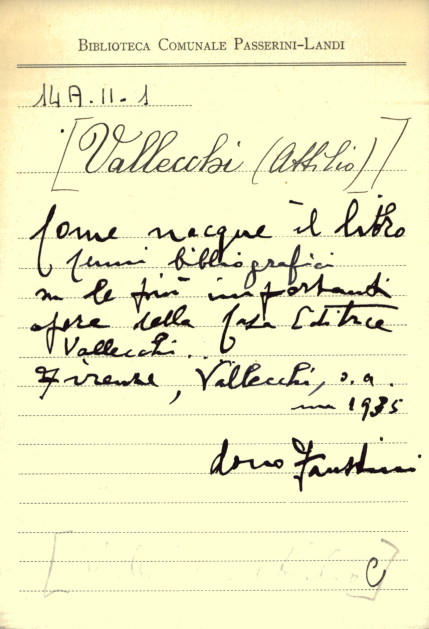 BIBLIOTECA COMUNALE PASSERINI-LANDI
14A.II-1
[Vallecchi (Attilio)]
Come nacque il libro
Cenni bibliografici
su le più importanti
opere della Casa Editrice
Vallecchi..
Firenze, Vallecchi, s.a.
ma 1935
dono Faustini
C